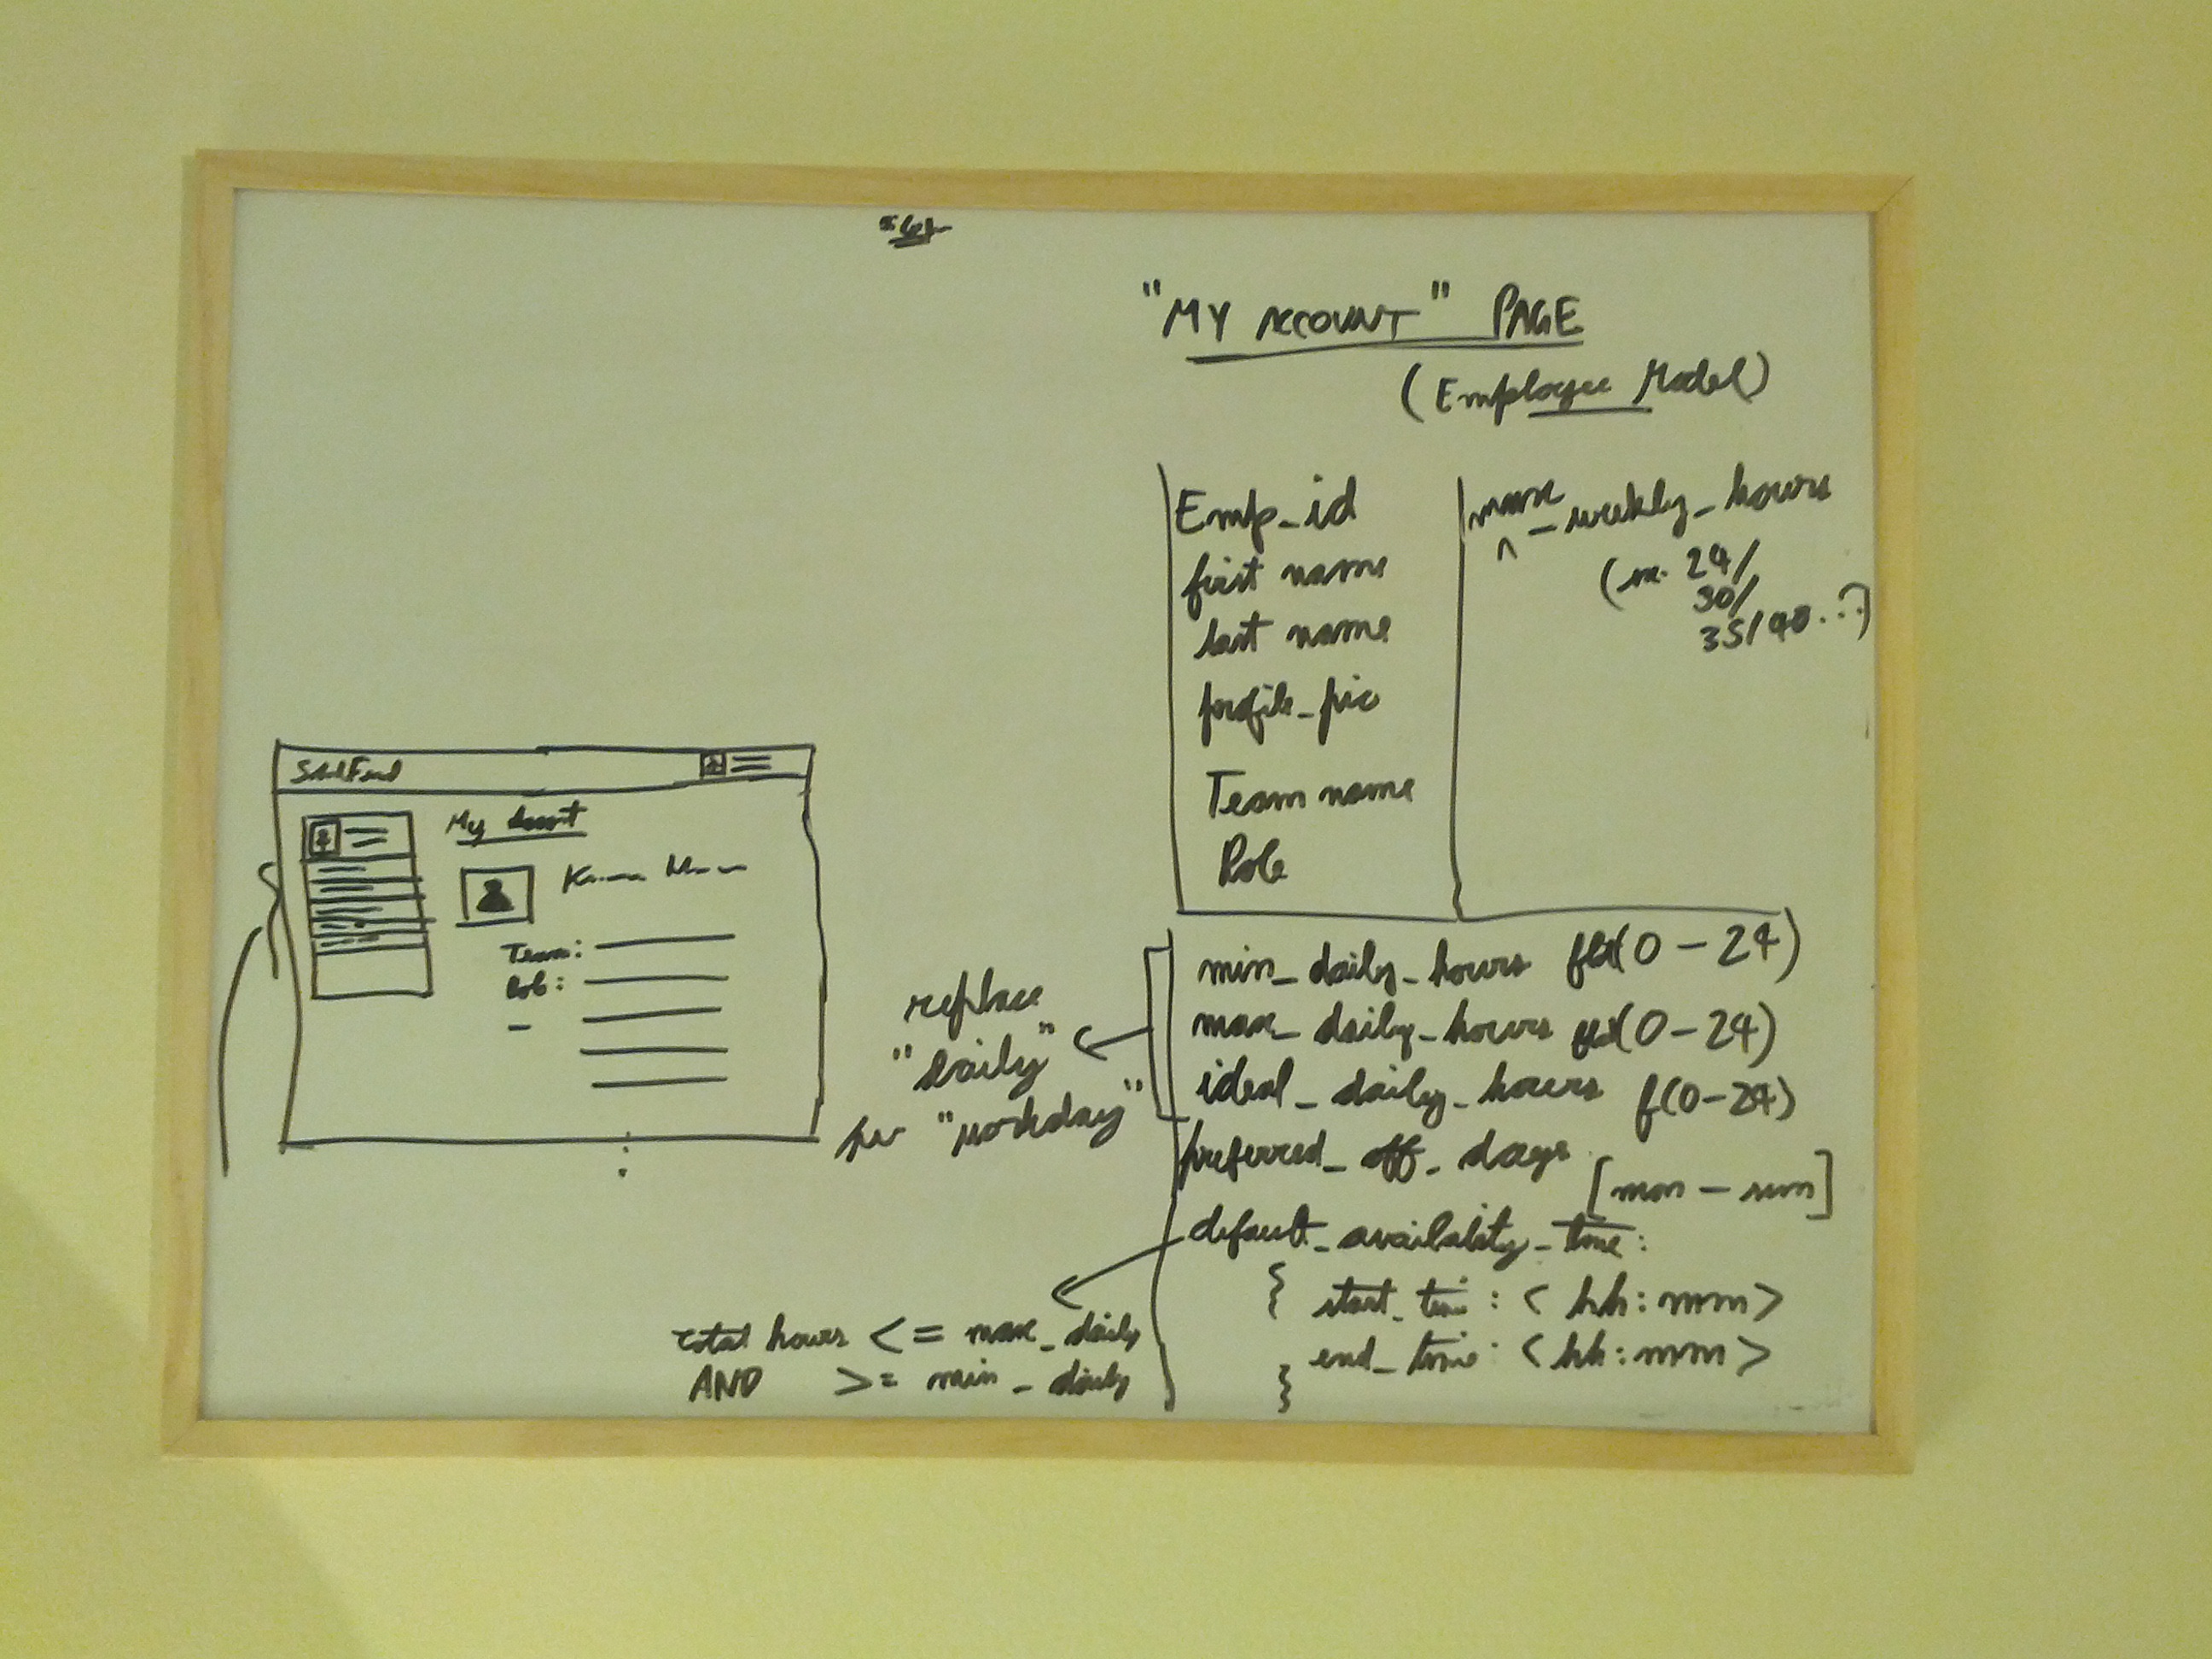 "MY ACCOUNT" PAGE
(Employee Model)
Emp_id
first name
last name
profile_pic
Team name
Role
max_weekly_hours
(ex. 24/
30/
35/40...)
My Account
Team:
Role:
min_daily_hours float(0-24)
max_daily_hours float(0-24)
ideal_daily_hours f(0-24)
preferred_off_days
[mon - sun]
default_availability_time:
{ start_time: <hh:mm>
end_time: <hh:mm>
}
replace
"daily"
"workday"
total hours <= max_daily
AND >= min_daily